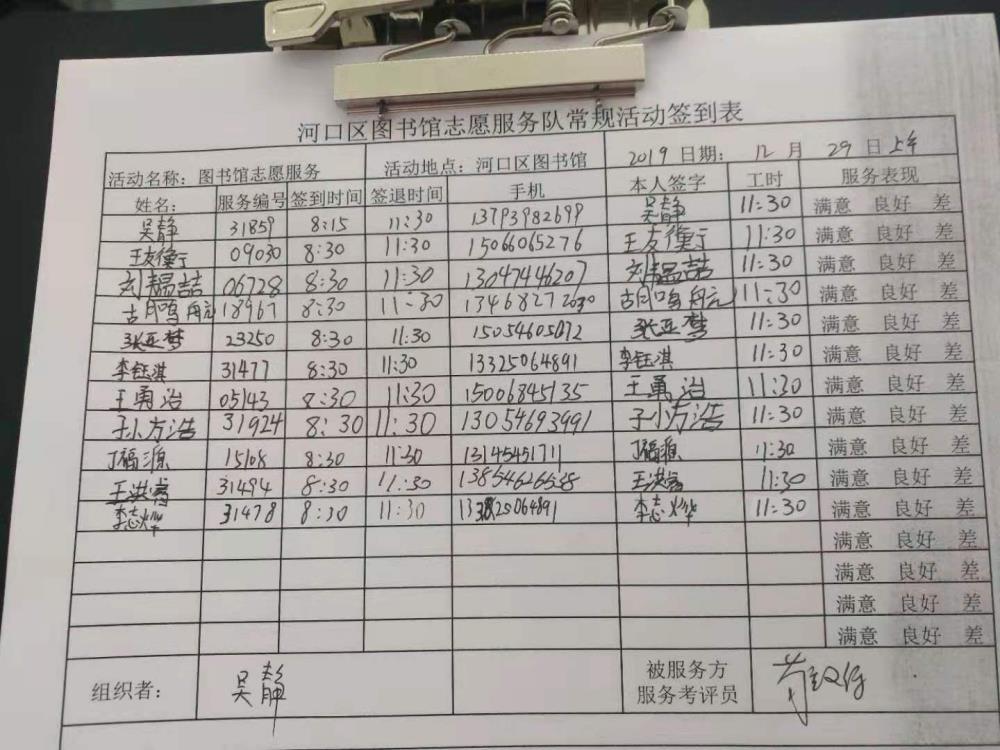 河口区图书馆志愿服务队常规活动签到表
活动名称：图书馆志愿服务 活动地点：河口区图书馆 2019 日期： 12 月 29 日 上午
姓名： 服务编号 签到时间 签退时间 手机 本人签字 工时 服务表现
吴静 31859 8:15 11:30 13793982699 吴静 11:30 满意 良好 差
王友衡 09030 8:30 11:30 15066065276 王友衡 11:30 满意 良好 差
刘韫喆 06728 8:30 11:30 13047446207 刘韫喆 11:30 满意 良好 差
胡鸣 18967 8:30 11:30 13468272030 胡鸣 11:30 满意 良好 差
张亚梦 23250 8:30 11:30 15054605072 张亚梦 11:30 满意 良好 差
李钰淇 31477 8:30 11:30 13325064891 李钰淇 11:30 满意 良好 差
王勇治 05143 8:30 11:30 15006845135 王勇治 11:30 满意 良好 差
孙方浩 31924 8:30 11:30 13054693991 孙方浩 11:30 满意 良好 差
丁福源 15108 8:30 11:30 13145451711 丁福源 11:30 满意 良好 差
王洪睿 31494 8:30 11:30 13854626558 王洪睿 11:30 满意 良好 差
李志烨 31478 8:30 11:30 13325064891 李志烨 11:30 满意 良好 差
满意 良好 差
满意 良好 差
满意 良好 差
满意 良好 差
组织者： 吴静 被服务方
服务考评员